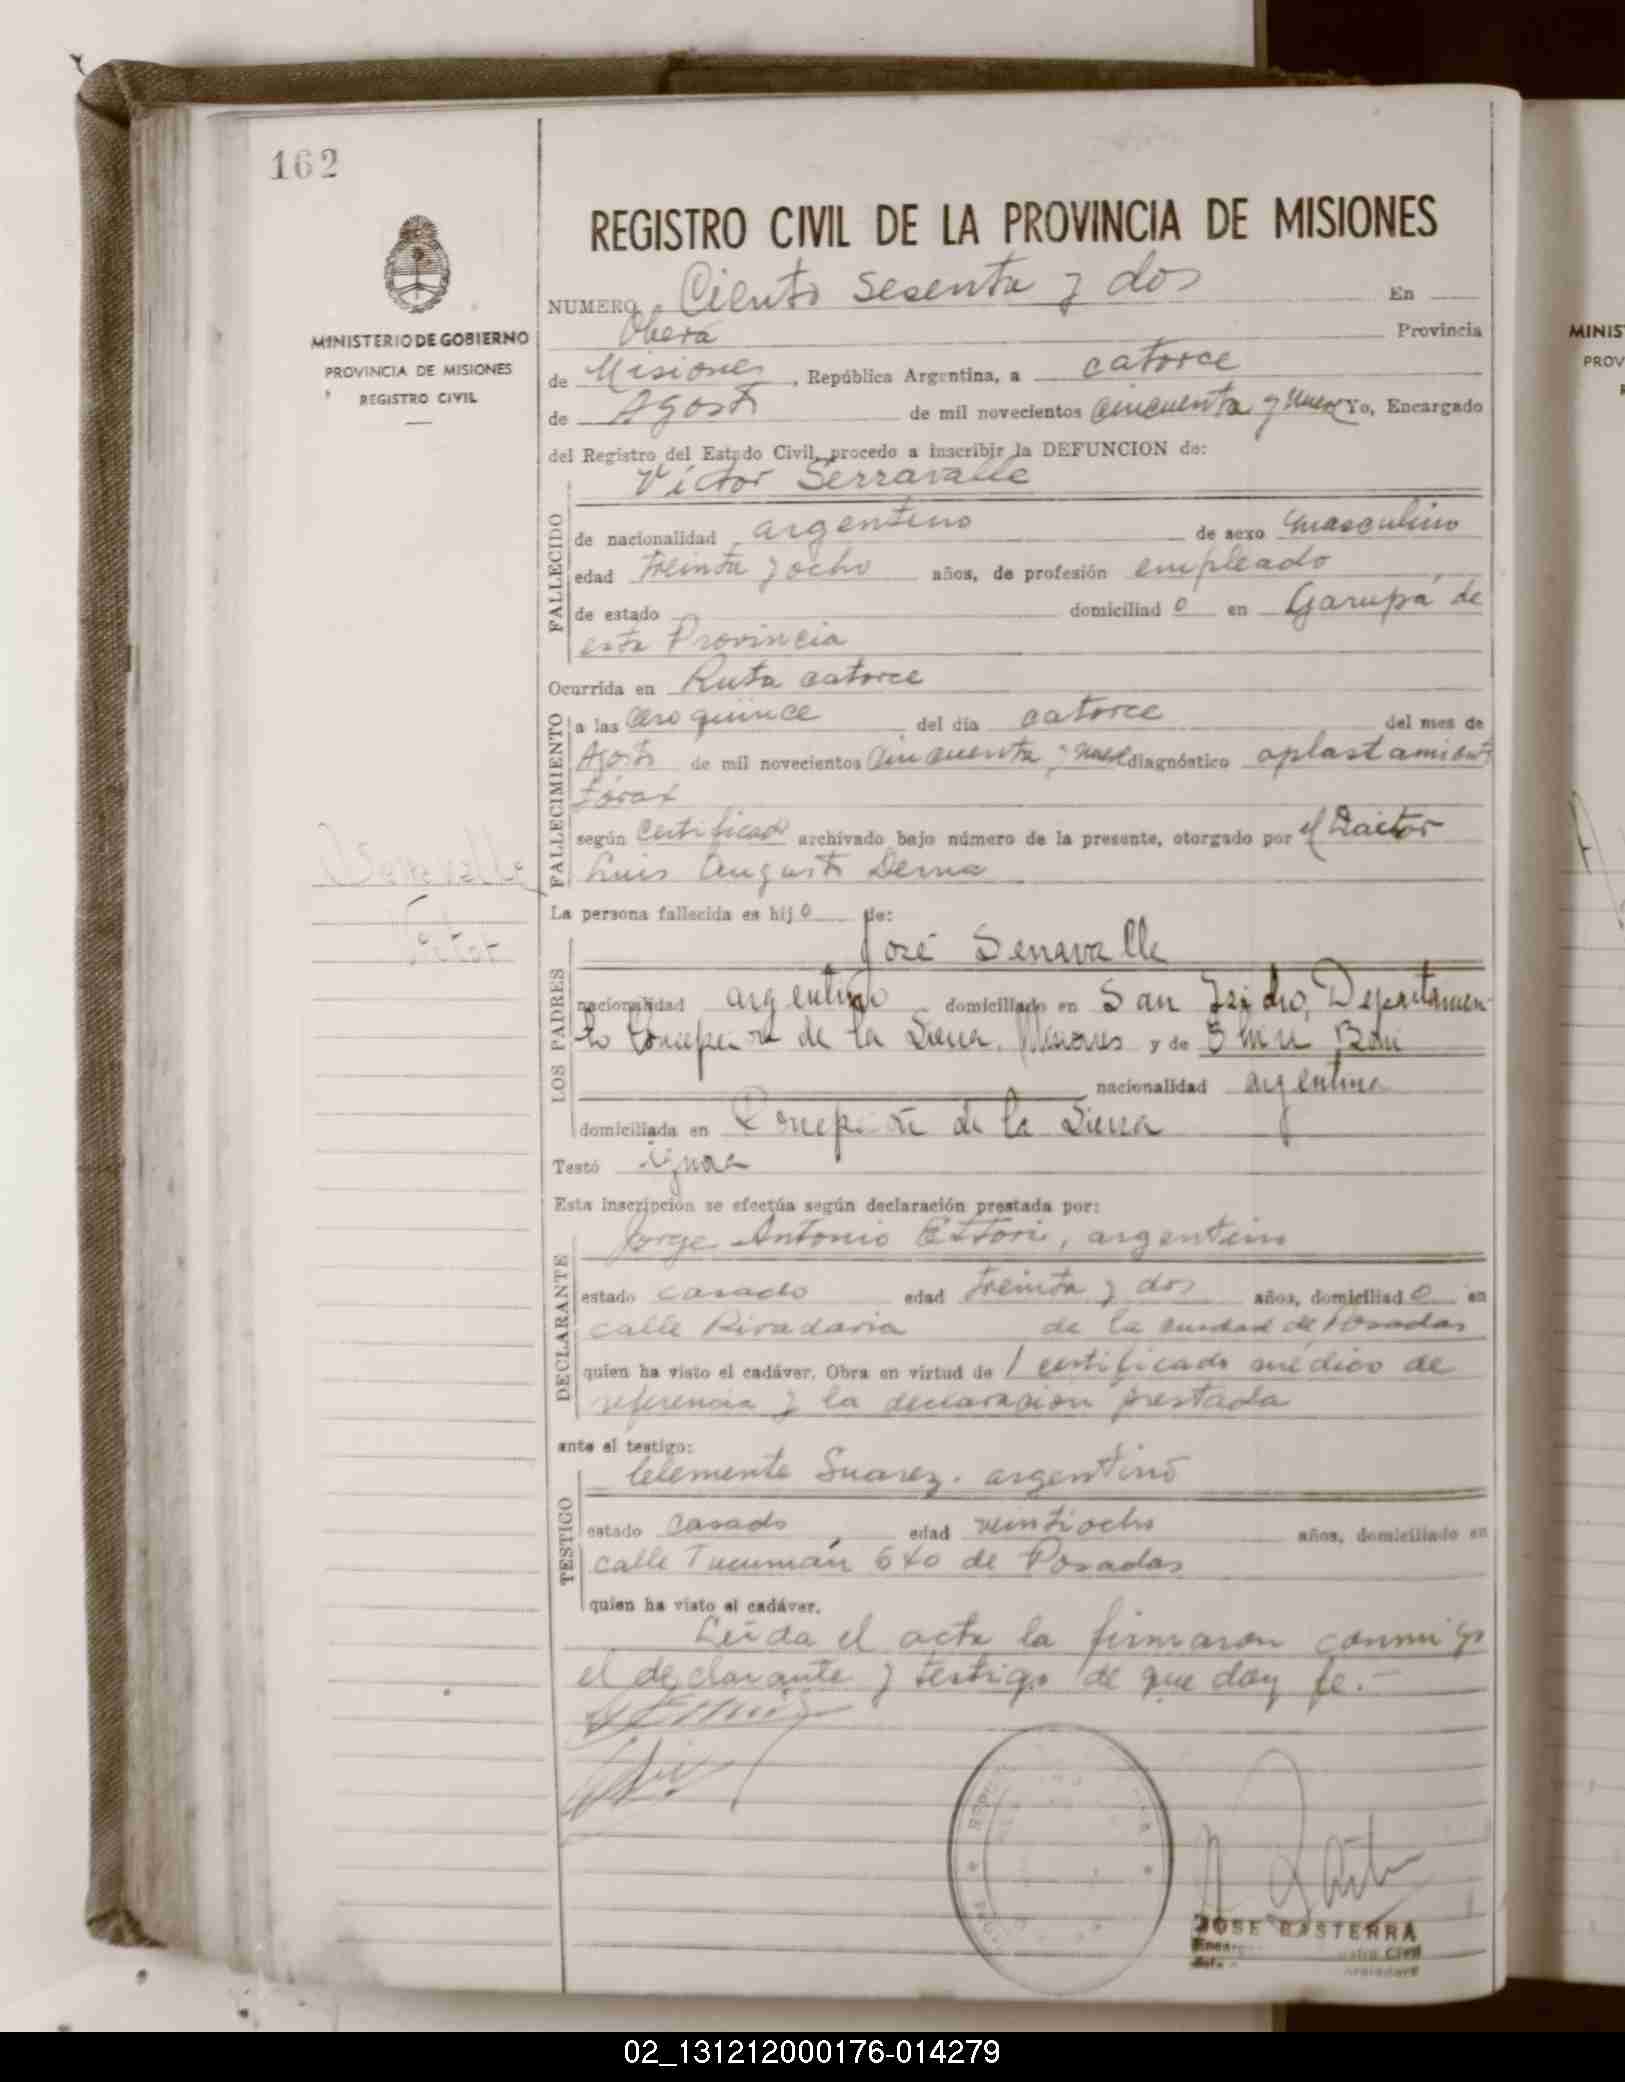 162
REGISTRO CIVIL DE LA PROVINCIA DE MISIONES
MINISTERIO DE GOBIERNO
PROVINCIA DE MISIONES
REGISTRO CIVIL
NUMERO Ciento sesenta y dos En
Oberá Provincia
de Misiones, República Argentina, a catorce
de Agosto de mil novecientos cincuenta y nueve Yo, Encargado
del Registro del Estado Civil, procedo a inscribir la DEFUNCION de:
Víctor Serravalle
FALLECIDO
de nacionalidad argentino de sexo masculino
edad treinta y ocho años, de profesión empleado
de estado domiciliad o en Garupá de
esta Provincia
Ocurrida en Ruta catorce
FALLECIMIENTO
a las cero quince del día catorce del mes de
Agosto de mil novecientos cincuenta y nueve diagnóstico aplastamiento
tórax
según certificado archivado bajo número de la presente, otorgado por el Doctor
Luis Augusto Derna
Serravalle
Víctor
La persona fallecida es hij o de:
LOS PADRES
José Serravalle
nacionalidad argentino domiciliado en San Isidro, Departamen-
to Concepción de la Sierra, Misiones y de
nacionalidad argentina
domiciliada en Concepción de la Sierra
Testó ignora
Esta inscripción se efectúa según declaración prestada por:
DECLARANTE
Jorge Antonio Ettori, argentino
estado casado edad treinta y dos años, domiciliad o en
calle Rivadavia de la ciudad de Posadas
quien ha visto el cadáver. Obra en virtud de l certificado médico de
referencia y la declaración prestada
ante el testigo:
TESTIGO
Clemente Suarez. argentino
estado casado edad veintiocho años, domiciliado en
calle Tucumán 640 de Posadas
quien ha visto el cadáver.
Leída el acta la firmaron conmigo
el declarante y testigo de que doy fe.-
JOSE BASTERRA
02_131212000176-014279